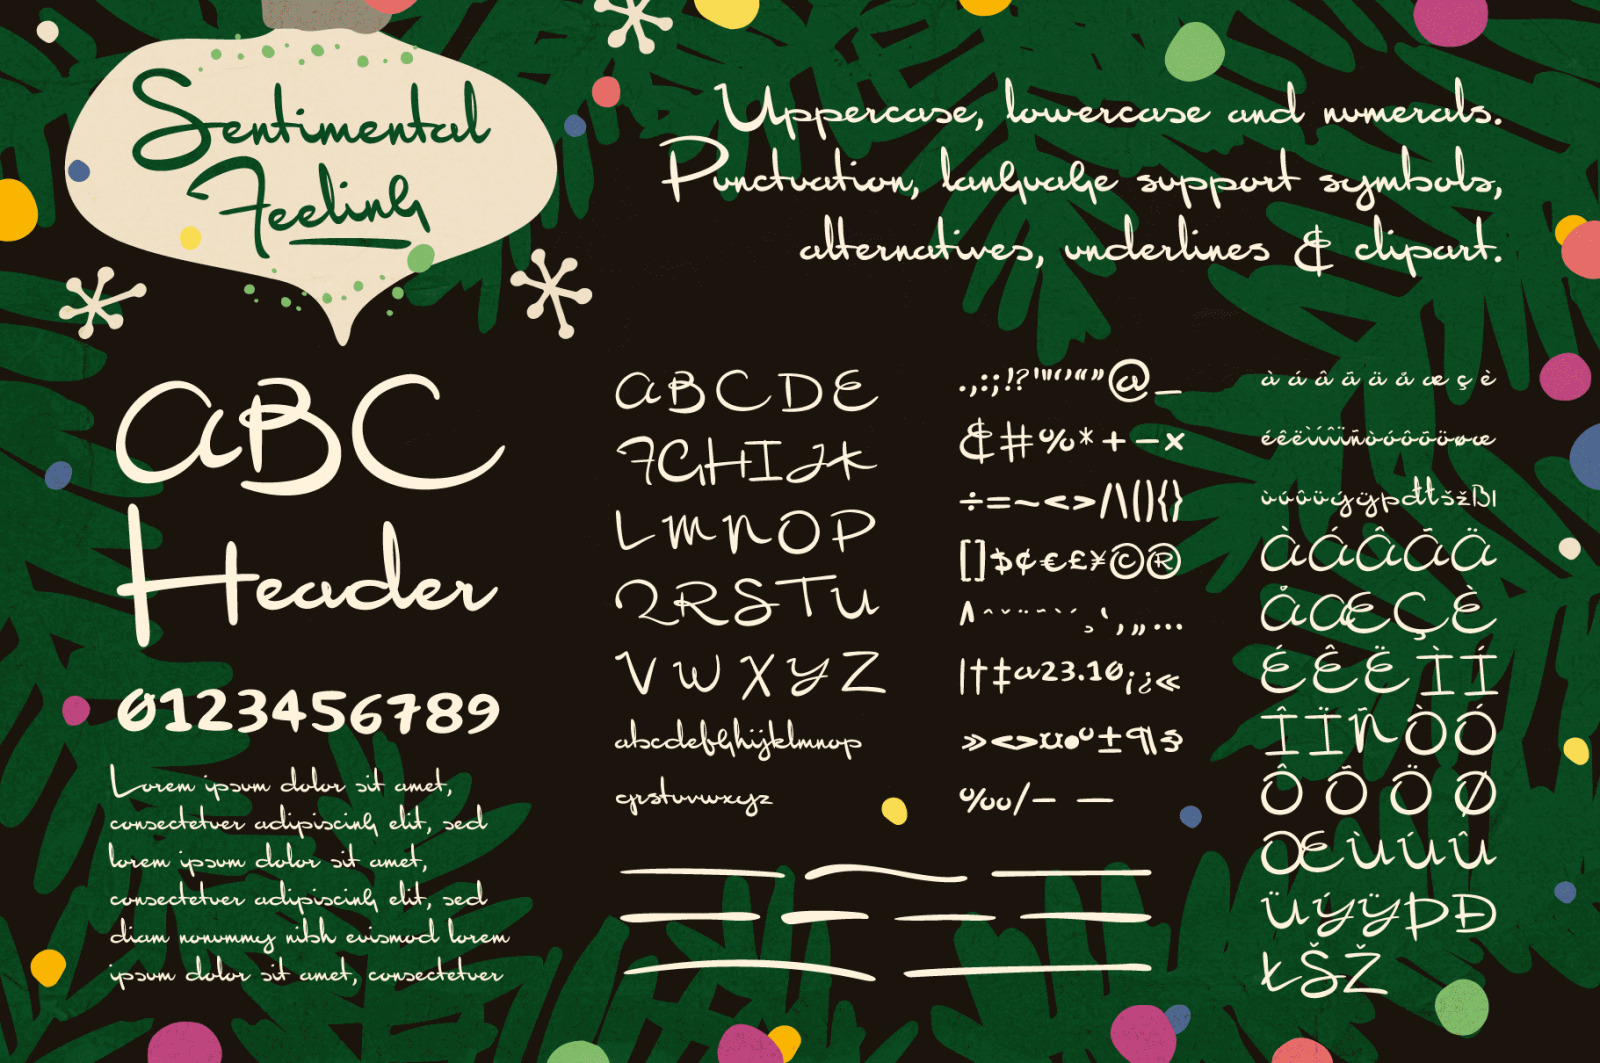 Sentimental
Feeling
Uppercase, lowercase and numerals.
Punctuation, language support symbols,
alternatives, underlines & clipart.
ABC
Header
0123456789
Lorem ipsum dolor sit amet,
consectetuer adipiscing elit, sed
lorem ipsum dolor sit amet,
consectetuer adipiscing elit, sed
diam nonummy nibh euismod lorem
ipsum dolor sit amet, consectetuer
A B C D E
F G H I J K
L M N O P
Q R S T U
V W X Y Z
abcdefghijklmnop
qrstuvwxyz
.,:;!?'"‘’“”@_
&#%*+−×
÷=~<>/\(){}
[]$¢€£¥©®
^ˆˇ¨˜`´¸‘‚„…
|†‡a23.10¡¿«
»<>¤•º±¶§
‰/– —
à á â ã ä å æ ç è
éêëìíîïñòóôõöøœ
ùúûüýÿþđłšžBı
ÀÁÂÃÄ
ÅÆÇÈ
ÉÊËÌÍ
ÎÏÑÒÓ
ÔÕÖØ
ŒÙÚÛ
ÜÝŸÞĐ
ŁŠŽ